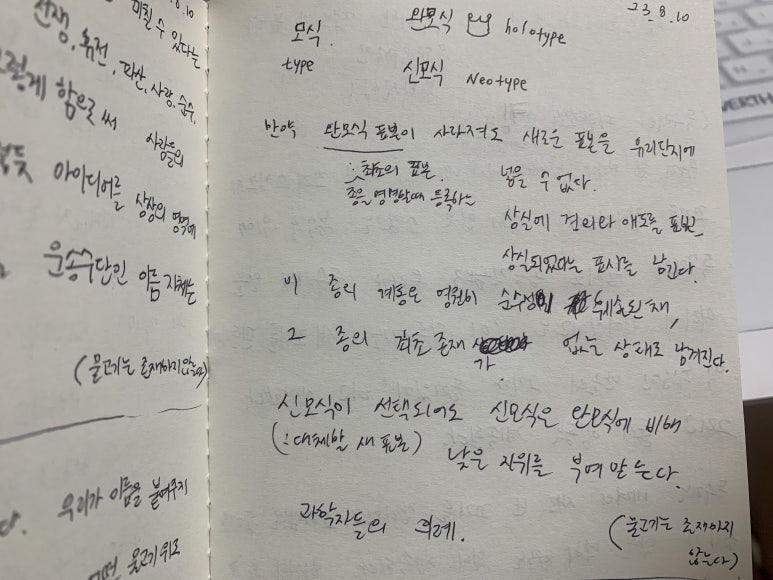 8.10
미칠 수 있다는
전쟁, 축전, 파산, 사랑, 순수,
그렇게 함으로써 사람들의
아이디어를 상상의 영역에
운송수단인 이름 자체는
(물고기는 존재하지 않는다)
우리가 이름을 붙여주지
물고기 위로
23.8.10
모식 완모식 holotype
type 신모식 Neotype
만약 완모식 표본이 사라져도 새로운 표본을 유리단지에
넣을 수 없다.
최초의 표본.
종을 명명할때 등록하는
상실에 경의와 애도를 표하고
상실되었다는 표시를 남긴다.
이 종의 계통은 영원히 순수성이 훼손된채,
그 종의 최초 존재가 없는 상태로 남겨진다.
신모식이 선택되어도 신모식은 완모식에 비해
(:대체할 새 표본) 낮은 지위를 부여받는다.
과학자들의 의례.
(물고기는 존재하지
않는다)